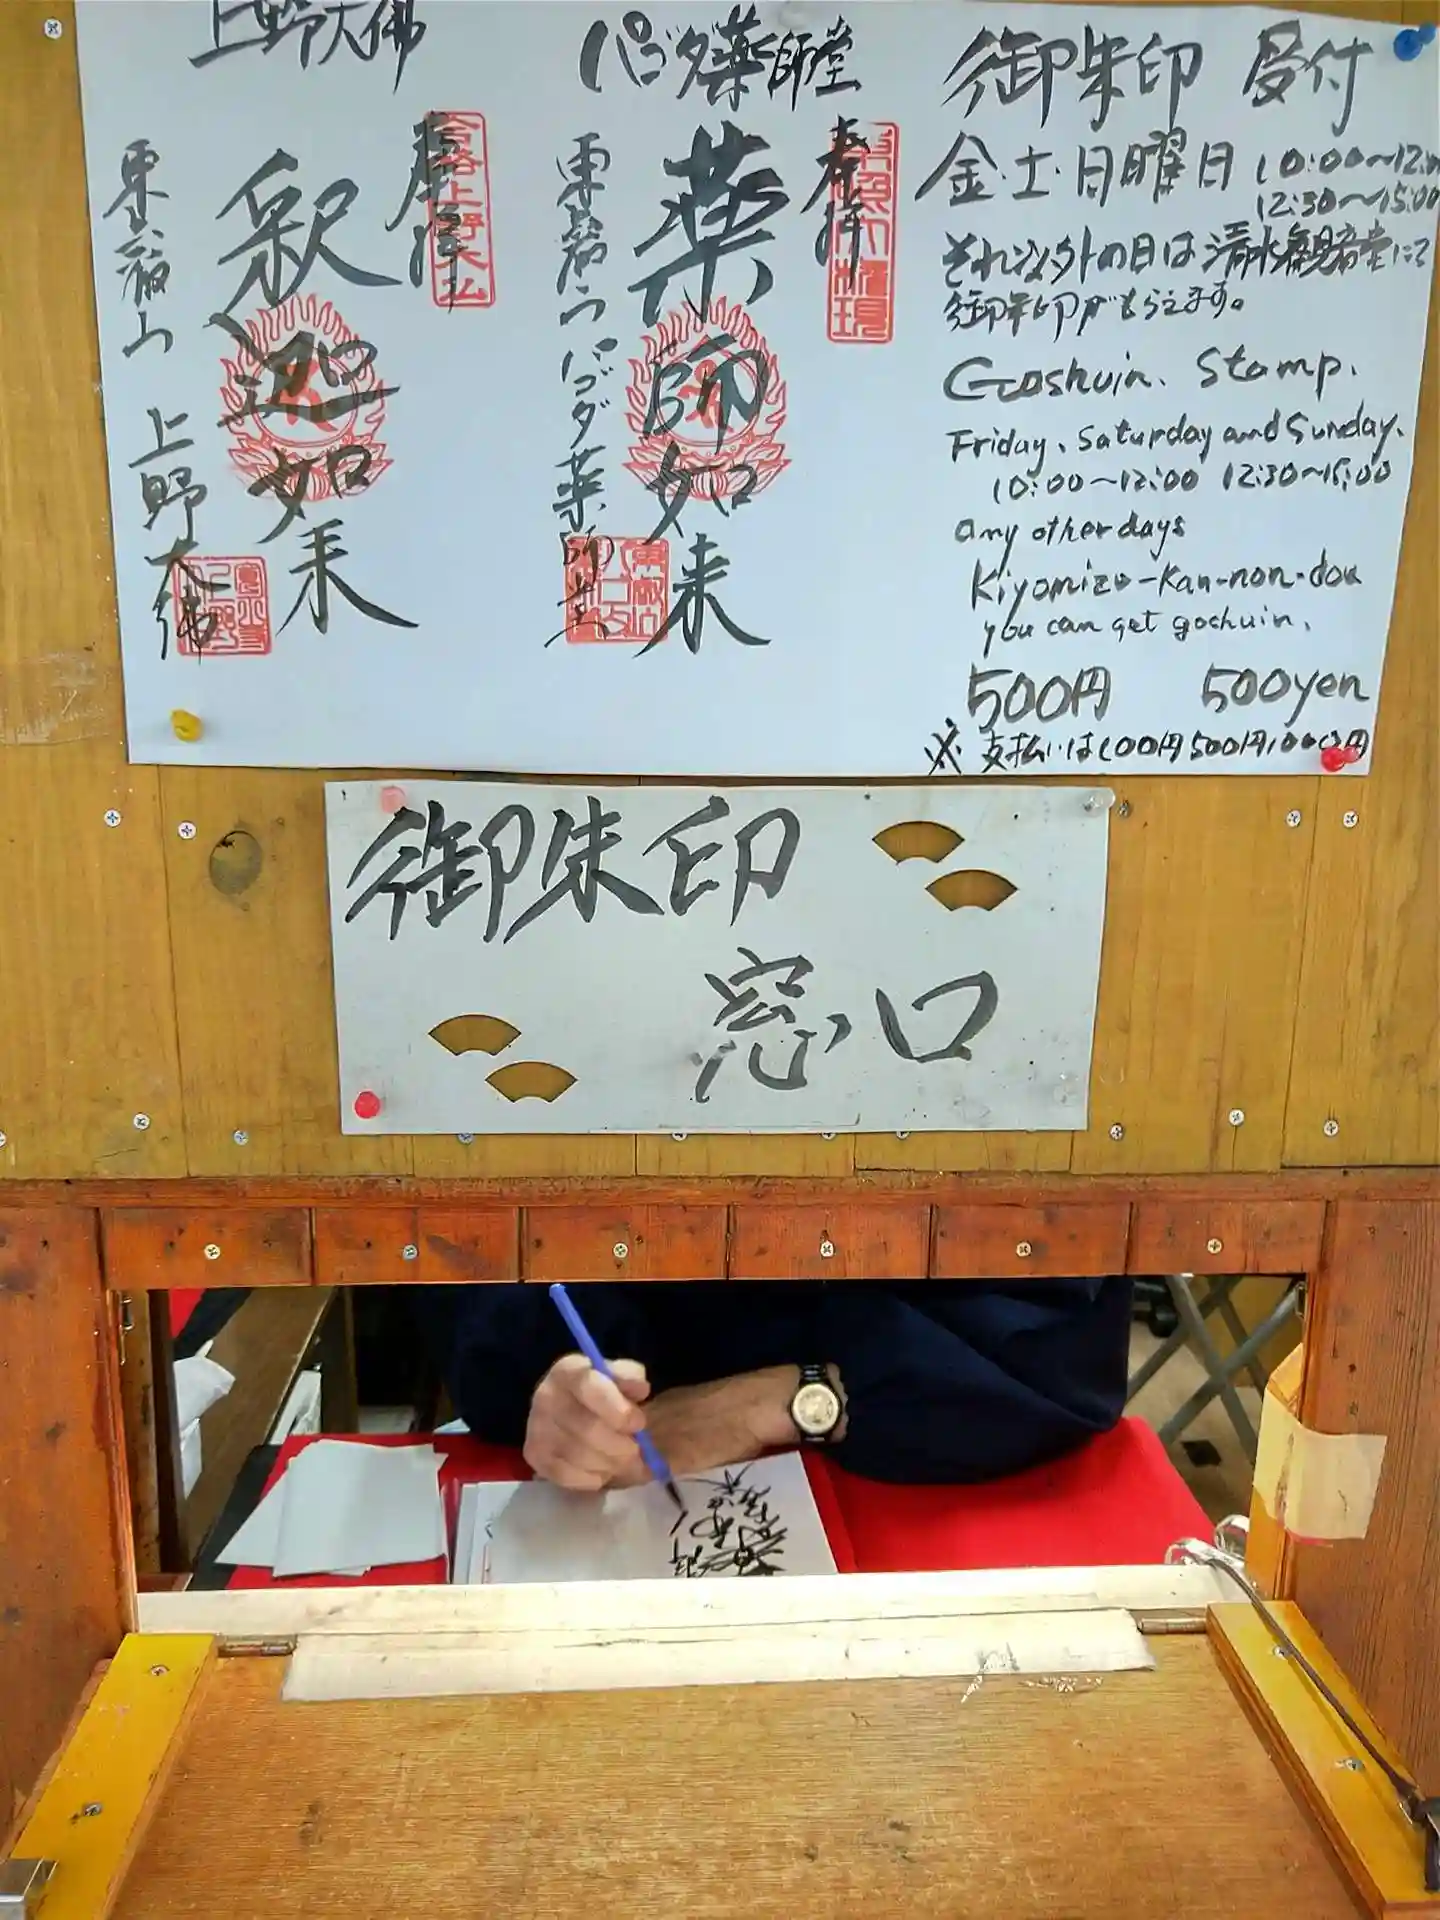 上野大佛
奉拝
釈迦如来
東叡山 上野大佛
合格上野大仏
パゴダ薬師堂
奉拝
薬師如来
東叡山 パゴダ薬師堂
御朱印 受付
金・土・日曜日 10:00〜12:00
12:30〜15:00
それ以外の日は清水観音堂にて
御朱印がもらえます。
Goshuin. Stamp.
Friday, Saturday and Sunday.
10:00〜12:00 12:30〜15:00
any other days
Kiyomizu-Kan-non-dou
you can get gochuin.
500円 500yen
※支払いは100円500円1000円
御朱印
窓口